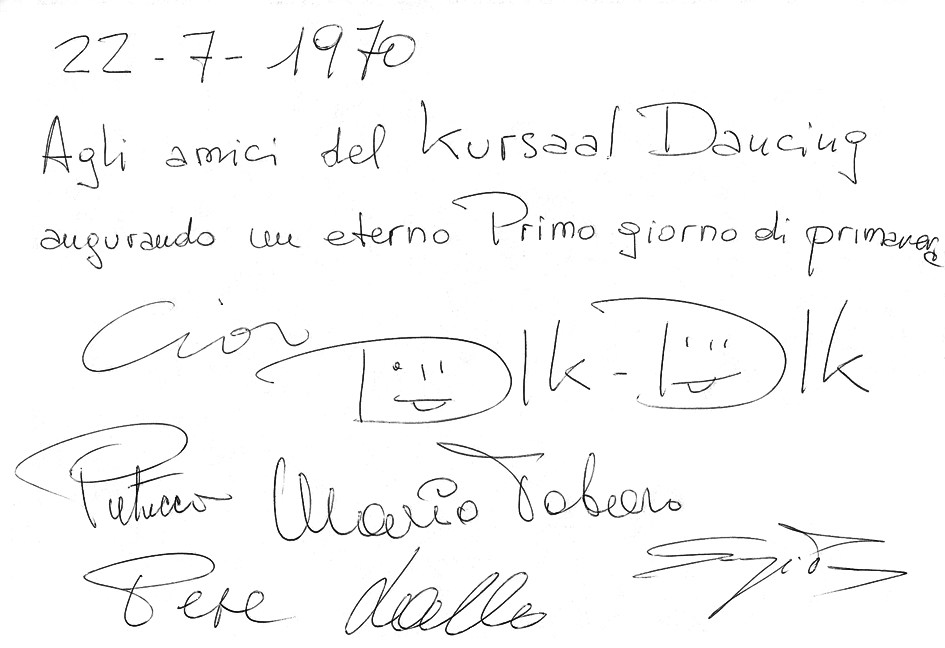 22-7-1970
Agli amici del Kursaal Dancing
augurando un eterno Primo giorno di primavera
Ciao Dik-Dik
Pietruccio Mario Totaro
Pepe Lallo